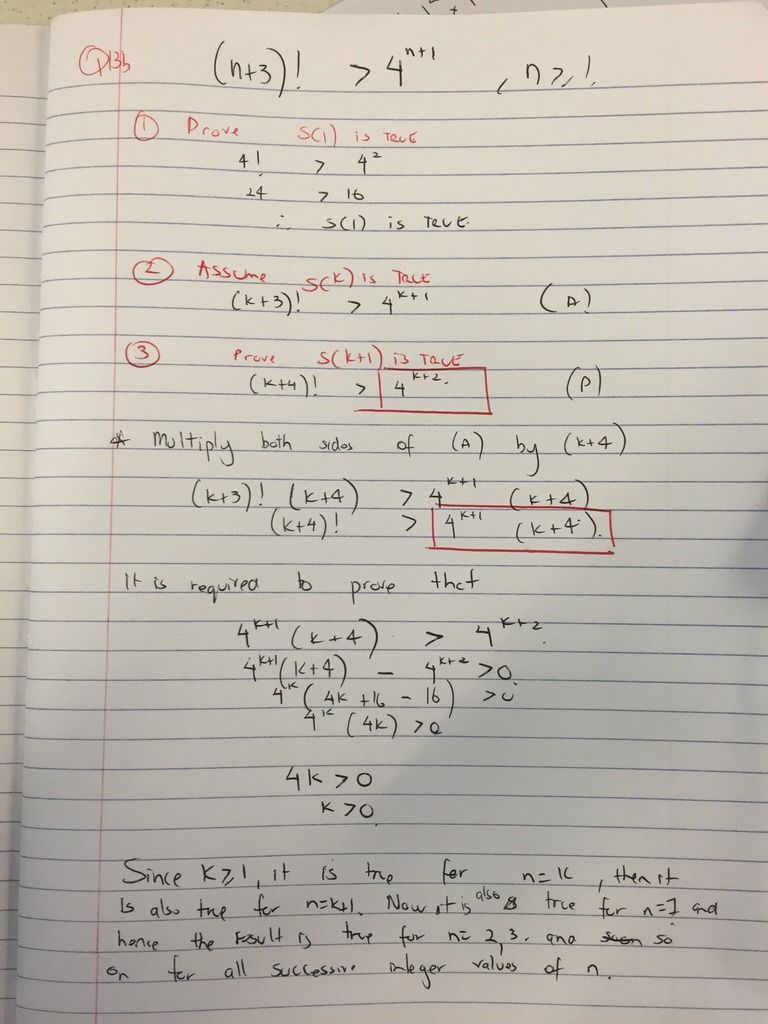 Q13b (n+3)! > 4^{n+1} , n ⩾ 1.
① Prove S(1) is TRUE
4! > 4^2
24 > 16
∴ S(1) is TRUE.
② Assume S(K) is TRUE
(k+3)! > 4^{k+1} (A)
③ Prove S(k+1) is TRUE
(k+4)! > 4^{k+2}. (P)
* Multiply both sides of (A) by (k+4)
(k+3)! (k+4) > 4^{k+1} (k+4)
(k+4)! > 4^{k+1} (k+4).
It is required to prove that
4^{k+1} (k+4) > 4^{k+2}.
4^{k+1}(k+4) - 4^{k+2} > 0.
4^k (4k +16 - 16) > 0
4^k (4k) > 0
4k > 0
k > 0.
Since K ⩾ 1, it is true for n=K, then it
is also true for n=k+1. Now, it is also true for n=1 and
hence the result is true for n= 2,3. and so
on for all successive integer values of n.